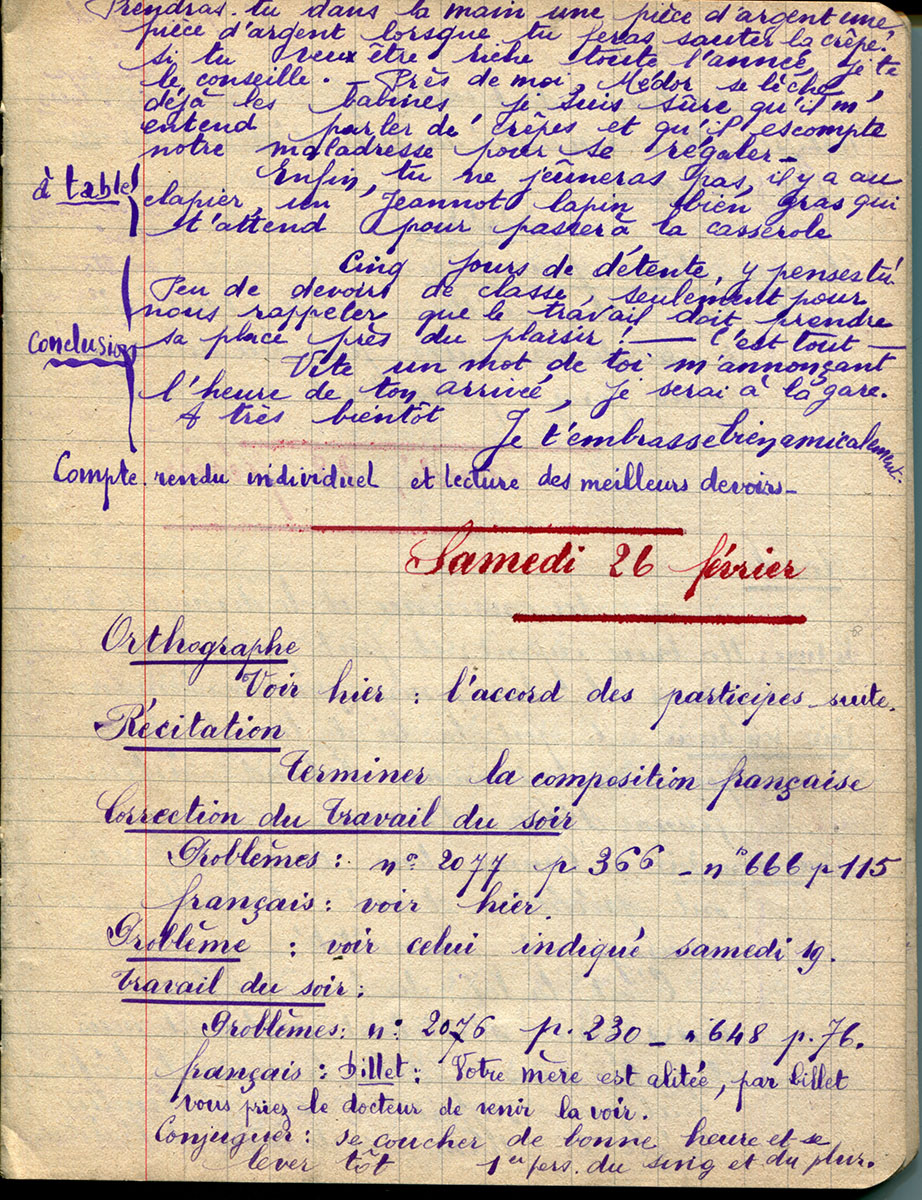 Prendras-tu dans la main une pièce d'argent une
pièce d'argent lorsque tu feras sauter la crêpe?
si tu veux être riche toute l'année, je te
le conseille. - Près de moi, Médor se lèche
déjà les babines je suis sûre qu'il m'
entend parler de crêpes et qu'il escompte
notre maladresse pour se régaler -
à table Enfin, tu ne jeûneras pas, il y a au
clapier, un Jeannot lapin bien gras qui
t'attend pour passer à la casserole
Cinq jours de détente, y penses tu.
Peu de devoirs de classe, seulement pour
nous rappeler que le travail doit prendre
Conclusion sa place près du plaisir! — C'est tout —
Vite un mot de toi m'annonçant
l'heure de ton arrivée, je serai à la gare.
A très bientôt
Je t'embrasse bien amicalement.
Compte-rendu individuel et lecture des meilleurs devoirs -
Samedi 26 février
Orthographe
Voir hier : l'accord des participes - suite.
Récitation
Terminer la composition française
Correction du Travail du soir
Problèmes : n° 2077 p 366 - n° 666 p 115
français : voir hier.
Problème : voir celui indiqué samedi 19.
Travail du soir :
Problèmes: n° 2076 p. 230 - n° 648 p. 76.
français : billet : Votre mère est alitée, par billet
vous priez le docteur de venir la voir.
Conjuguer : se coucher de bonne heure et se
lever tôt 1er pers. du sing et du plur.